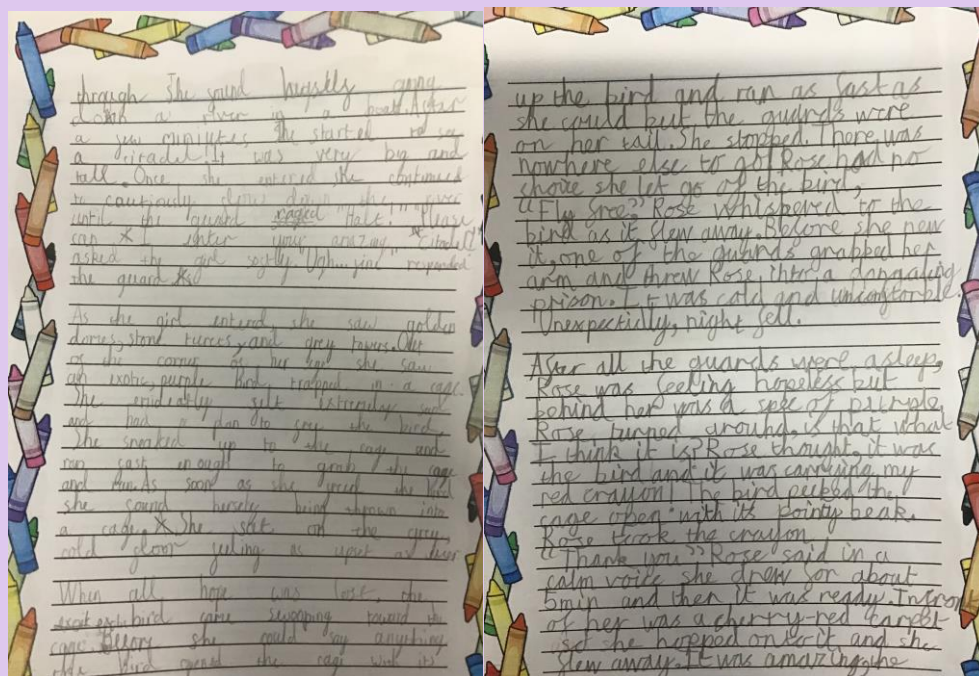 through She found herself going
down a river in a boat. After
a few miniutes she started to see
a citadel. It was very big and
tall. Once she entered she continued
to cautiously down the river
until the guard raged "Halt." "Please
can I enter your amazing citadel?"
asked the girl softly. "Ugh... fine" responded
the guard.
As the girl entered she saw golden
domes, stone and grey towers. Out
of the corner of her eye she saw
an exotic, purple bird, trapped in a cage.
She felt extremely sad
and had a plan to free the bird.
She sneaked up to the cage and
ran fast enough to grab the cage
and run. As soon as she freed the bird
she found herself being thrown into
a cage. She sat on the grey,
cold floor feeling as upset as ever
When all hope was lost, the
bird came swooping toward the
cage. Before she could say anything
the bird opened the cage with its
up the bird and ran as fast as
she could but the guards were
on her tail. She stopped. There was
nowhere else to go! Rose had no
choice she let go of the bird,
"Fly free," Rose whispered to the
bird as it flew away. Before she new
it, one of the guards grabbed her
arm and threw Rose into a dangaling
prison. It was cold and uncomfortble.
Unexpectily, night fell.
After all the guards were asleep,
Rose was feeling hopeless but
behind her was a spec of purple
Rose, turned around, is that what
I think it is? Rose thought, it was
the bird and it was carrying my
red crayon! The bird pecked the
cage open with its pointy beak.
Rose took the crayon.
"Thank you" Rose said in a
calm voice she drew for about
5min and then it was ready. Infron
of her was a cherry-red carpet
so she hopped onto it and she
flew away. It was amazing, she